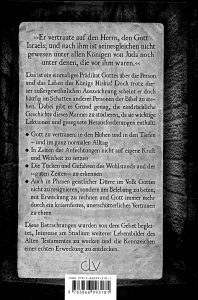 »Er vertraute auf den Herrn, den Gott
Israels; und nach ihm ist seinesgleichen nicht
gewesen unter allen Königen von Juda noch
unter denen, die vor ihm waren.«
Das ist ein einmaliges Prädikat Gottes über die Person
und das Leben des Königs Hiskia! Doch trotz die-
ser außergewöhnlichen Auszeichnung scheint er doch
häufig im Schatten anderer Personen der Bibel zu ste-
hen. Dabei gibt es Grund genug, die eindrückliche
Geschichte dieses Mannes zu studieren, da sie wichtige
Lektionen und geeignete Herausforderungen enthält:
Gott zu vertrauen in den Höhen und in den Tiefen
– und im ganz normalen Alltag
In Zeiten der Anfechtungen nicht auf eigene Kraft
und Weisheit zu setzen
Die Tücken und Gefahren des Wohlstands und der
»guten Zeiten« zu erkennen
Auch in Phasen geistlicher Dürre im Volk Gottes
nicht zu resignieren, sondern um Belebung zu beten,
mit Erweckung zu rechnen und Gott immer mehr
durch ein krisenfestes, unerschütterliches Vertrauen
zu ehren
Diese Betrachtungen wurden von dem Gebet beglei-
tet, Interesse am Studium weiterer Lebensbilder des
Alten Testamentes zu wecken und die Kennzeichen
einer echten Erweckung zu entdecken.
clv